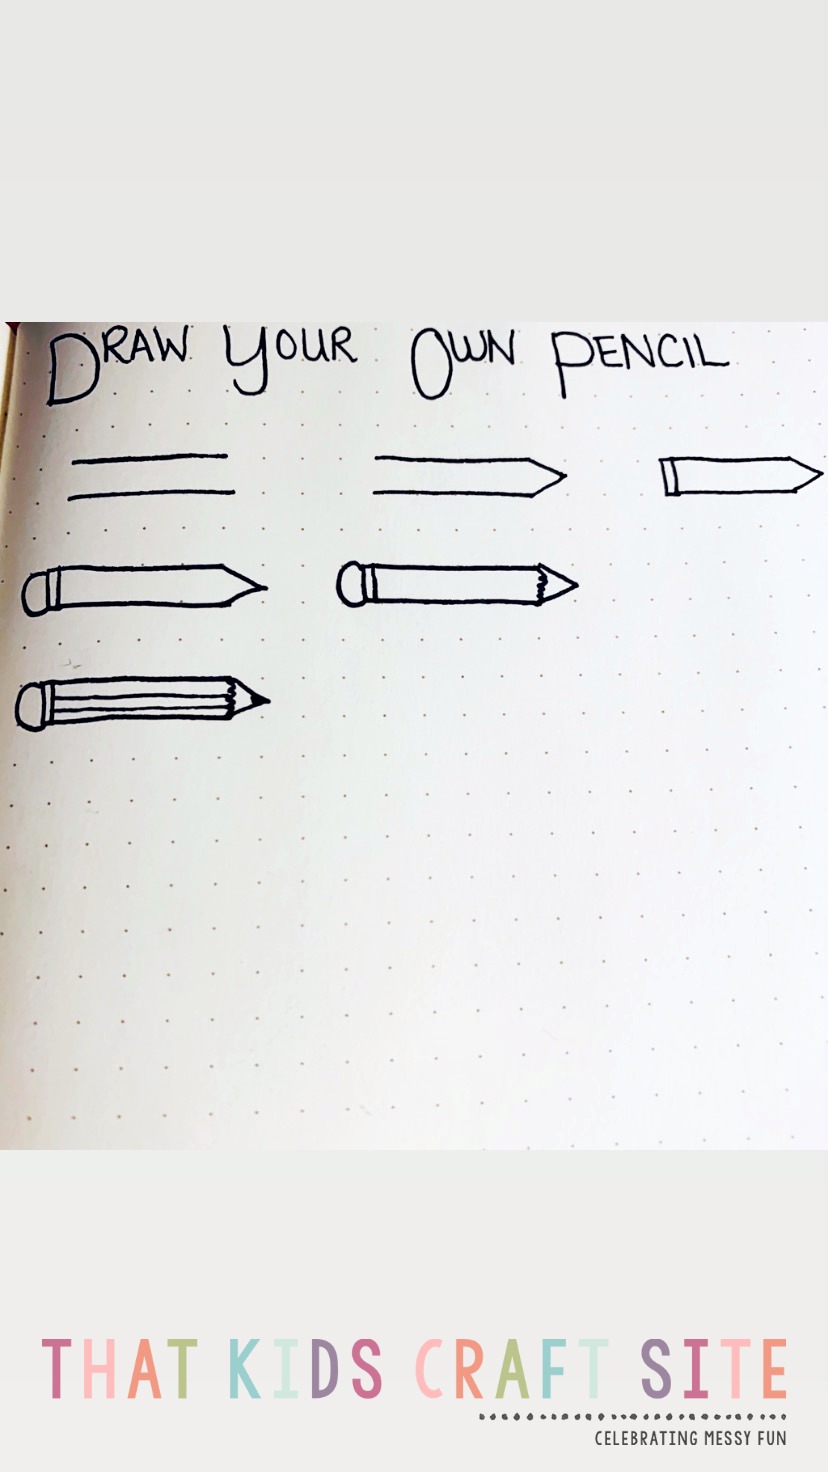 DRAW YOUR OWN PENCIL
THAT KIDS CRAFT SITE
CELEBRATING MESSY FUN